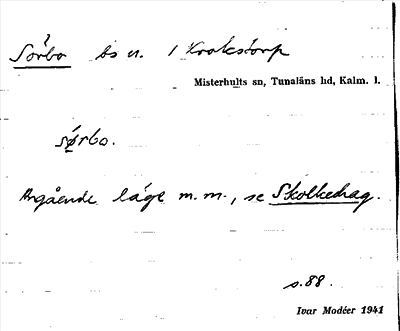 Sörbo bs n. 1 Krokstorp
Misterhults sn, Tunaläns hd, Kalm. l.
sørbo.
Angående läge m.m., se Skolkedrag.
s.88.
Ivar Modéer 1941